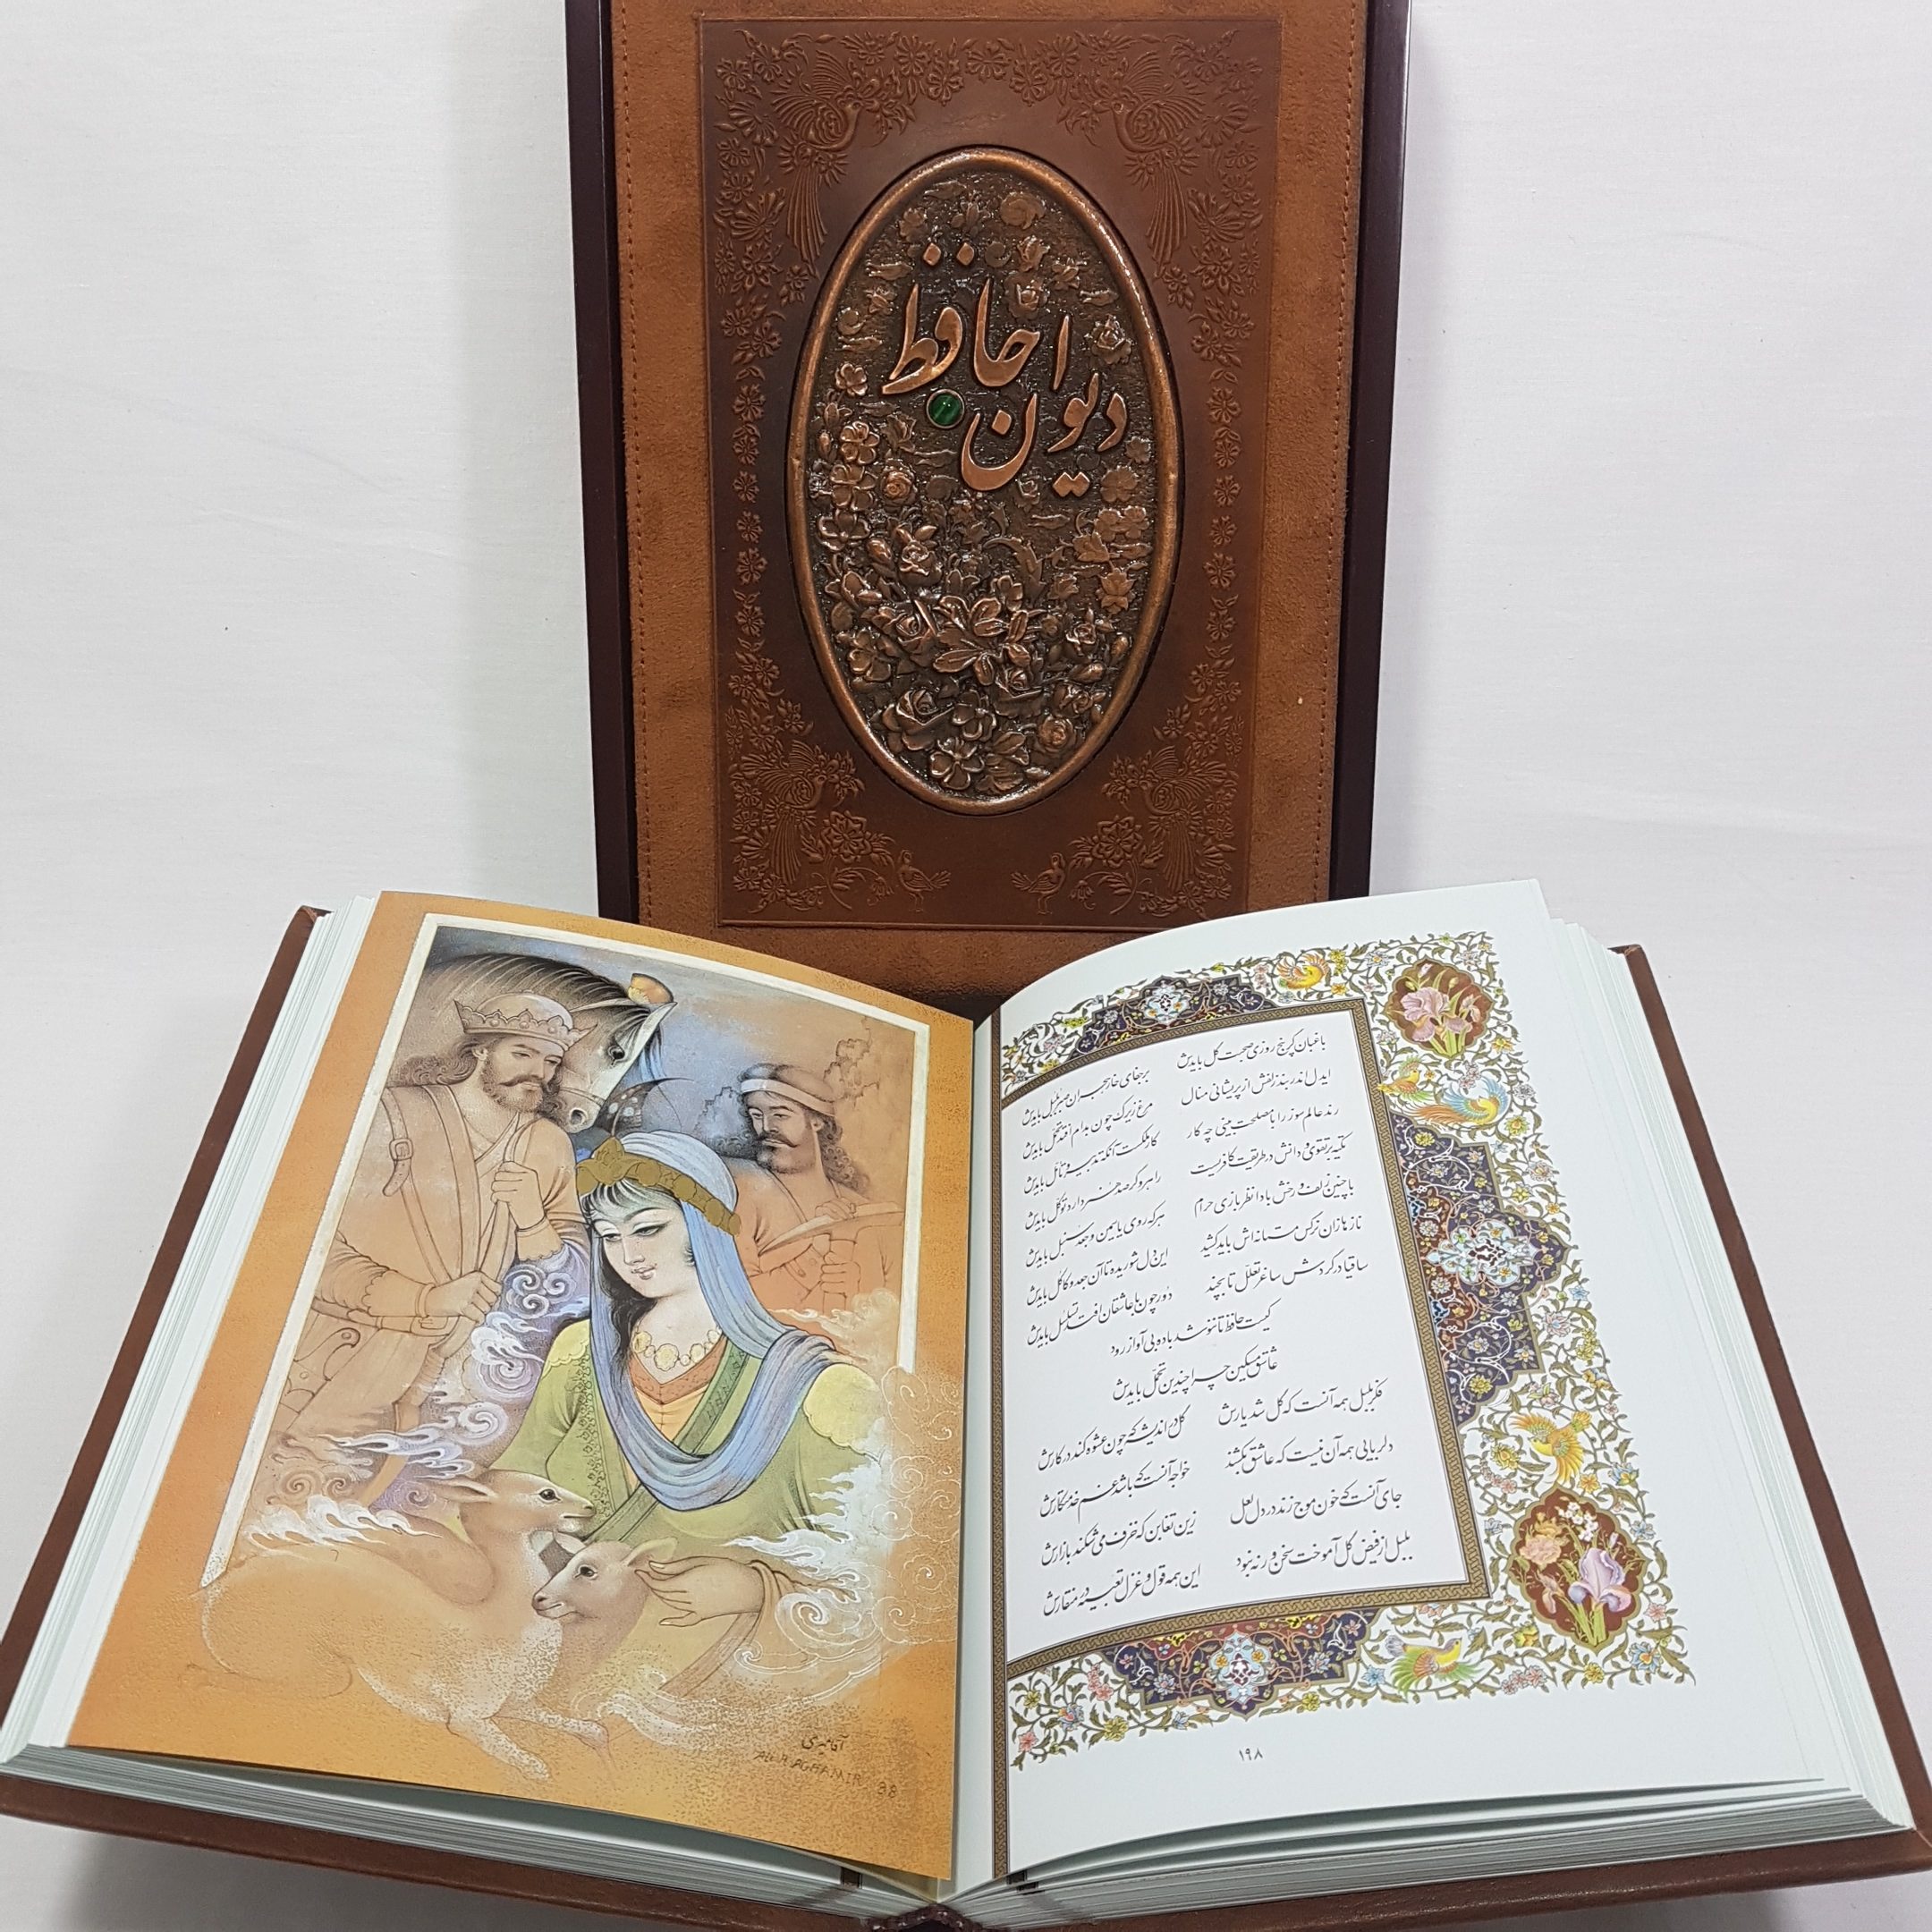 دیوان حافظ
باغبان گر پنج روزی صحبت گل بایدش
بر جفای خار هجران صبر بلبل بایدش
ای دل اندر بند زلفش از پریشانی منال
مرغ زیرک چون به دام افتد تحمل بایدش
رند عالم سوز را با مصلحت بینی چه کار
کار ملکست آنکه تدبیر و تأمل بایدش
تکیه بر تقوی و دانش در طریقت کافریست
راهرو گر صد هنر دارد توکل بایدش
با چنین زلف و رخش بادا نظربازی حرام
هر که روی یاسمین و جعد سنبل بایدش
نازها زان نرگس مستانه اش باید کشید
این دل شوریده تا آن جعد و کاکل بایدش
ساقیا در گردش ساغر تعلل تا بچند
دور چون با عاشقان افتد تسلسل بایدش
کیست حافظ تا ننوشد باده بی آواز رود
عاشق مسکین چرا چندین تحمل بایدش
فکر بلبل همه آنست که گل شد یارش
گل در اندیشه که چون عشوه کند در کارش
دلربایی همه آن نیست که عاشق بکشند
خواجه آنست که باشد غم خدمتکارش
جای آنست که خون موج زند در دل لعل
زین تغابن که خزف می شکند بازارش
بلبل از فیض گل آموخت سخن ورنه نبود
این همه قول و غزل تعبیه در منقارش
۱۹۸
آقامیری
AGHAMIRI 88